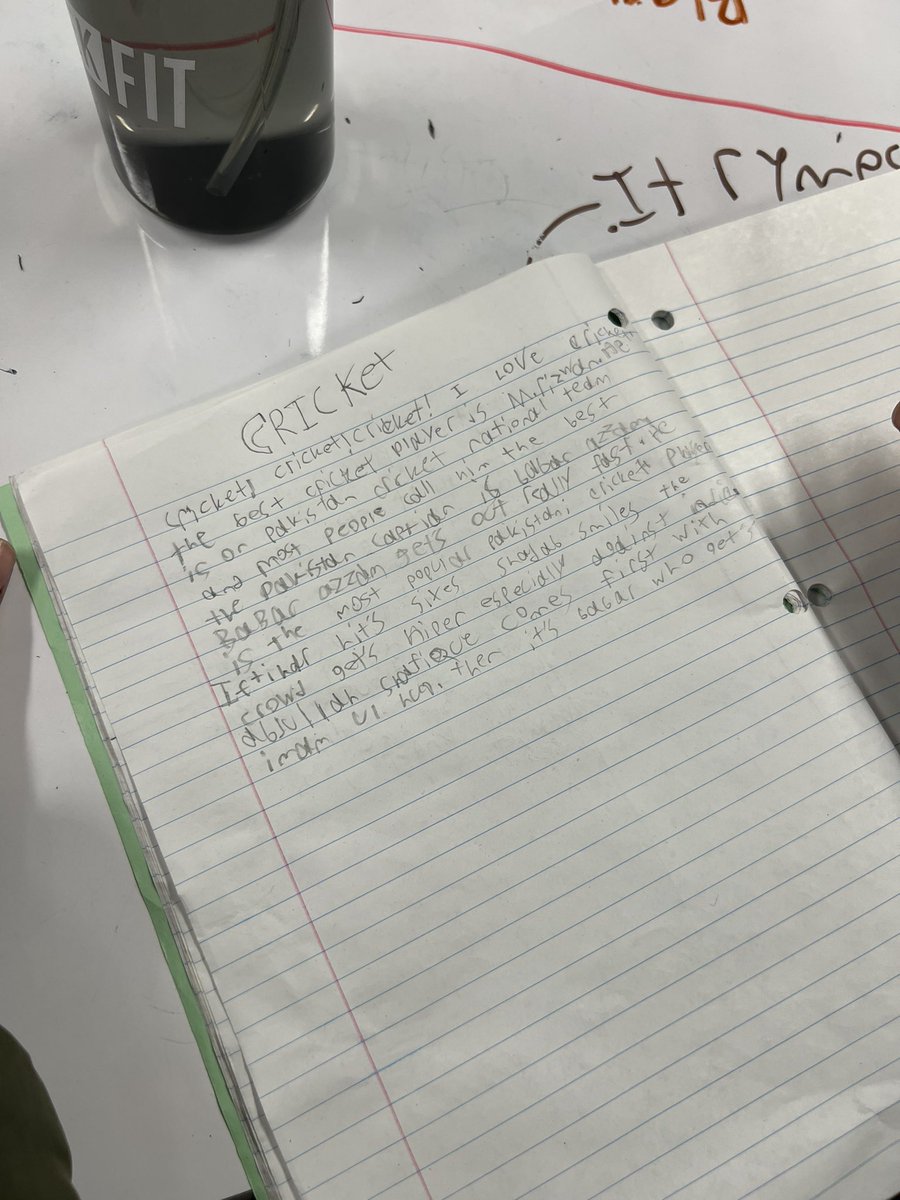 FIT
It rymed
CRICKET
Cricket! cricket! cricket! I love cricket
the best cricket player is M.fizwan. He
is on pakistan cricket national team
and most people call him the best
the pakistan captian is babar azzam
BaBar azzam gets out really fast. He
is the most popular pakistani cricket player
Iftihar hit's sixes shadab smiles the
crowd gets hiper especially against
abdullah shafique comes first with
imam ul haq. then it's babar who get's